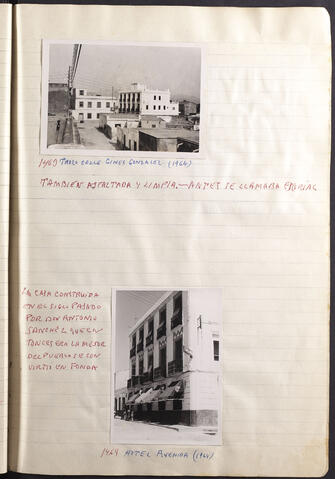 1463 TARDE CALLE GINES GONZALEZ (1964)
TAMBIEN ASFALTADA Y LIMPIA.—ANTES SE LLAMABA
LA CASA CONSTRUIDA
EN EL SIGLO PASADO
POR DON ANTONIO
SANCHEZ QUE EN
TONCES ERA LA MEJOR
DEL PUEBLO SE CON
VIRTIO EN FONDA
1464 HOTEL AVENIDA (1964)